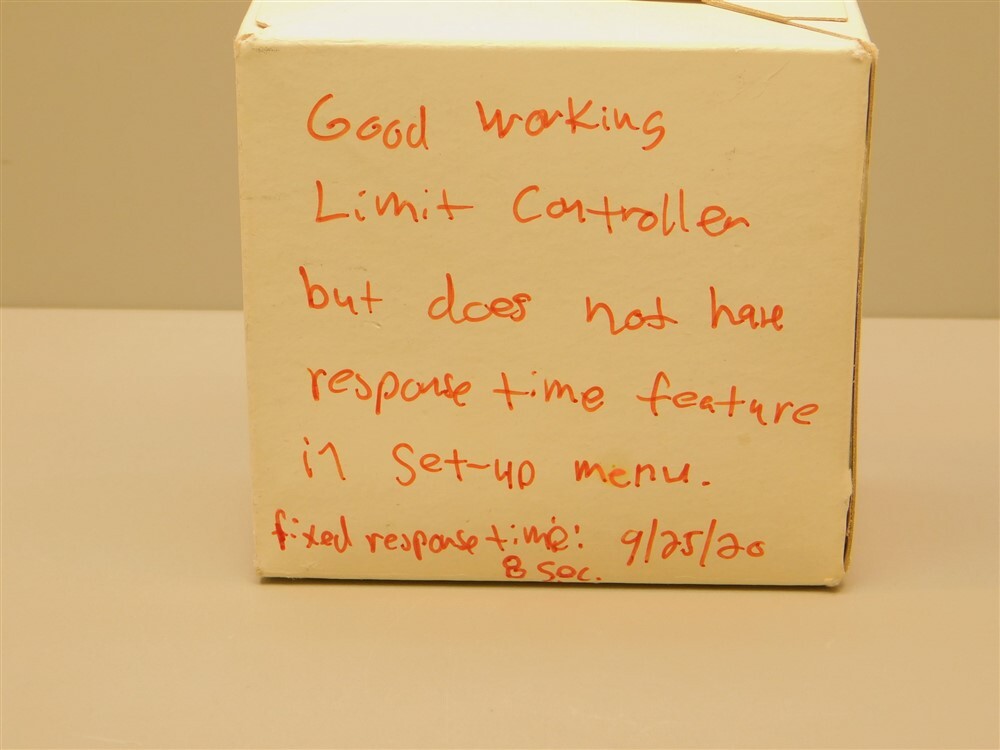 Good working
Limit Controller
but does not have
response time feature
in set-up menu.
fixed response time: 9/25/20
8 sec.